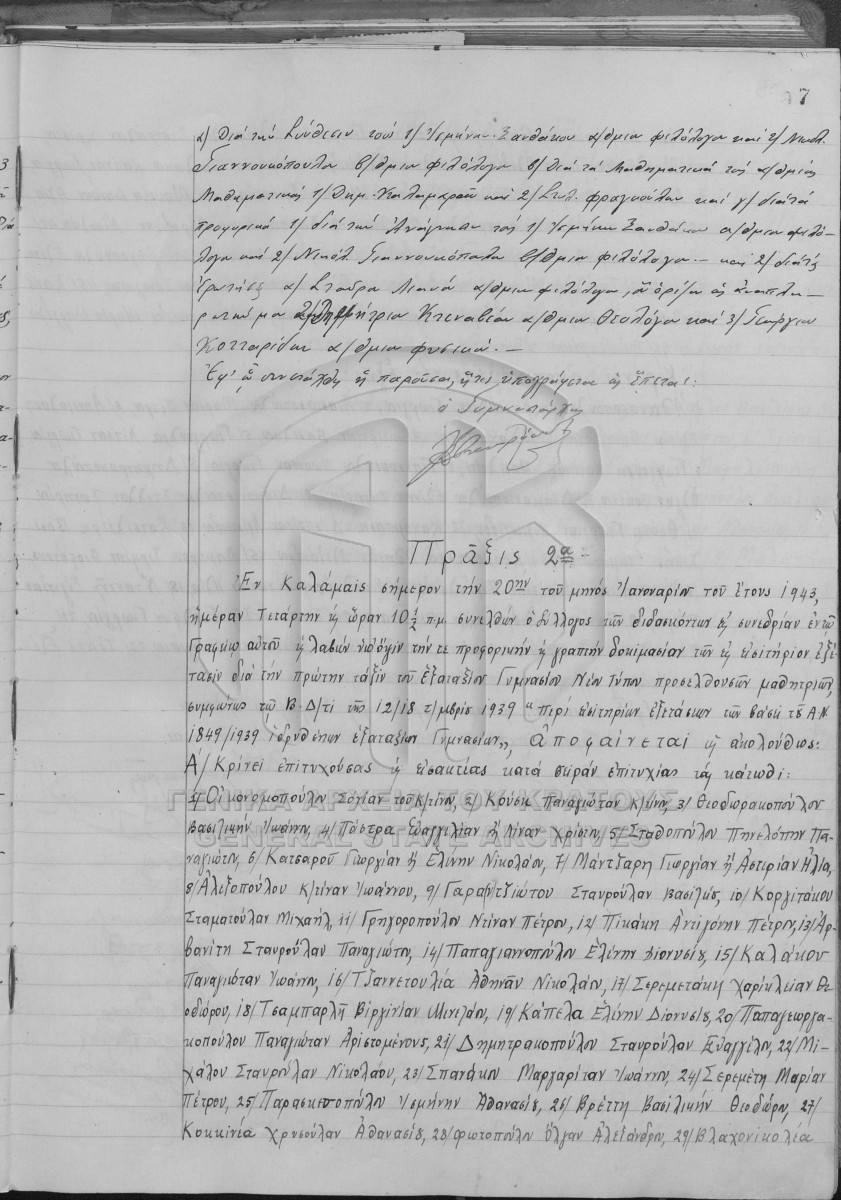 7
α) Διά την Σύνθεσιν τους 1) Ισμήνην Ξανθάκου α/θμιον φιλόλογον και 2) Νικόλ.
Γιαννουκόπουλον β/θμιον φιλόλογον β) διά τα Μαθηματικά τους α/θμιους
Μαθηματικούς 1) Δημ. και 2) Στυλ. Φραγκούλην και γ) διά τα
προφορικά 1) διά την Ανάγνωσιν τους 1) Ισμήνην Ξανθάκου α/θμιον φιλό-
λογον και 2) Νικόλ. Γιαννουκόπουλον β/θμιον φιλόλογον.— και 2) διά τας
Ερωτήσεις α) Σταύρον α/θμιον φιλόλογον, ὃν ὁρίζω ὡς ἀναπλη-
ρωτήν μου Δημήτριον α/θμιον Θεολόγον και 3) Γεώργιον
Κοτταρίδην α/θμιον φυσικόν.—
Ἐφ' ᾧ συνετάχθη ἡ παροῦσα, ἥτις ὑπογράφεται ὡς ἕπεται:
ὁ Γυμνασιάρχης
Πρᾶξις 2α-
Ἐν Καλάμαις σήμερον τήν 20ην τοῦ μηνός Ἰανουαρίου τοῦ ἔτους 1943,
ἡμέραν Τετάρτην ϗ ὥραν 10 1/2 π.μ. συνελθών ὁ Σύλλογος τῶν διδασκόντων εἰς συνεδρίαν ἐν τῷ
Γραφείῳ αὐτοῦ ϗ λαβών ὑπ' ὄψιν τήν τε προφορικήν ϗ γραπτήν δοκιμασίαν τῶν εἰς εἰσιτήριον ἐξέ-
τασιν διά τήν πρώτην τάξιν τοῦ Ἑξαταξίου Γυμνασίου Νέου Τύπου προσελθουσῶν μαθητριῶν,
συμφώνως τῷ Β.Δ/τι τῆς 12/18 7/μβρίου 1939 "περί εἰσιτηρίων ἐξετάσεων τῶν βάσει τοῦ Α.Ν
1849/1939 ἱδρυθέντων ἑξαταξίων Γυμνασίων", ἀποφαίνεται ὡς ἀκολούθως:
Α/ Κρίνει ἐπιτυχούσας ϗ εἰσακτέας κατά σειράν ἐπιτυχίας τάς κάτωθι:
1/ Οἰκονομοπούλου Σοφίαν τοῦ Κ/τίνου, 2/ Κούσκ Παναγιώταν Κ/τίνου, 3/ Θεοδωρακοπούλου
Βασιλικήν Ἰωάννου, 4/ Πόστρα Εὐαγγελίαν ἤ Λίναν Χρίστου, 5/ Σταθοπούλου Πηνελόπην Πα-
ναγιώτου, 6/ Κατσαροῦ Γεωργίαν ἤ Ἑλένην Νικολάου, 7/ Μάντζαρη Γεωργίαν ἤ Ἀστερίαν Ἠλία,
8/ Ἀλεξοπούλου Κ/τίναν Ἰωάννου, 9/ Γαραντζιώτου Σταυρούλαν Βασιλείου, 10/ Κορφιτάκου
Σταματούλαν Μιχαήλ, 11/ Γρηγοροπούλου Ντίναν Πέτρου, 12/ Πικάκη Ἀντιγόνην Πέτρου, 13/ Ἀρ-
βανίτη Σταυρούλαν Παναγιώτου, 14/ Παπαγιαννοπούλου Ἑλένην Διονυσίου, 15/ Καλάκου
Παναγιώταν Ἰωάννου, 16/ Τζαννετουλέα Ἀθηνᾶν Νικολάου, 17/ Σερεμετάκη Χαρίκλειαν Θε-
οδώρου, 18/ Τσαμπαρλῆ Βιργινίαν Μενελάου, 19/ Κάπελα Ἑλένην Διονυσίου, 20/ Παπαγεωργα-
κοπούλου Παναγιώταν Ἀριστομένους, 21/ Δημητρακοπούλου Σταυρούλαν Εὐαγγέλου, 22/ Μι-
χάλου Σταυρούλαν Νικολάου, 23/ Σπανάκου Μαργαρίταν Ἰωάννου, 24/ Σερεμέτη Μαρίαν
Πέτρου, 25/ Παρασκευοπούλου Ἰσμήνην Ἀθανασίου, 26/ Βρέττη Βασιλικήν Θεοδώρου, 27/
Κοκκινέα Χρυσούλαν Ἀθανασίου, 28/ Φωτοπούλου Ὄλγαν Ἀλεξάνδρου, 29/ Βλαχονικολέα
ΓΕΝΙΚΑ ΑΡΧΕΙΑ ΤΟΥ ΚΡΑΤΟΥΣ
GENERAL STATE ARCHIVES